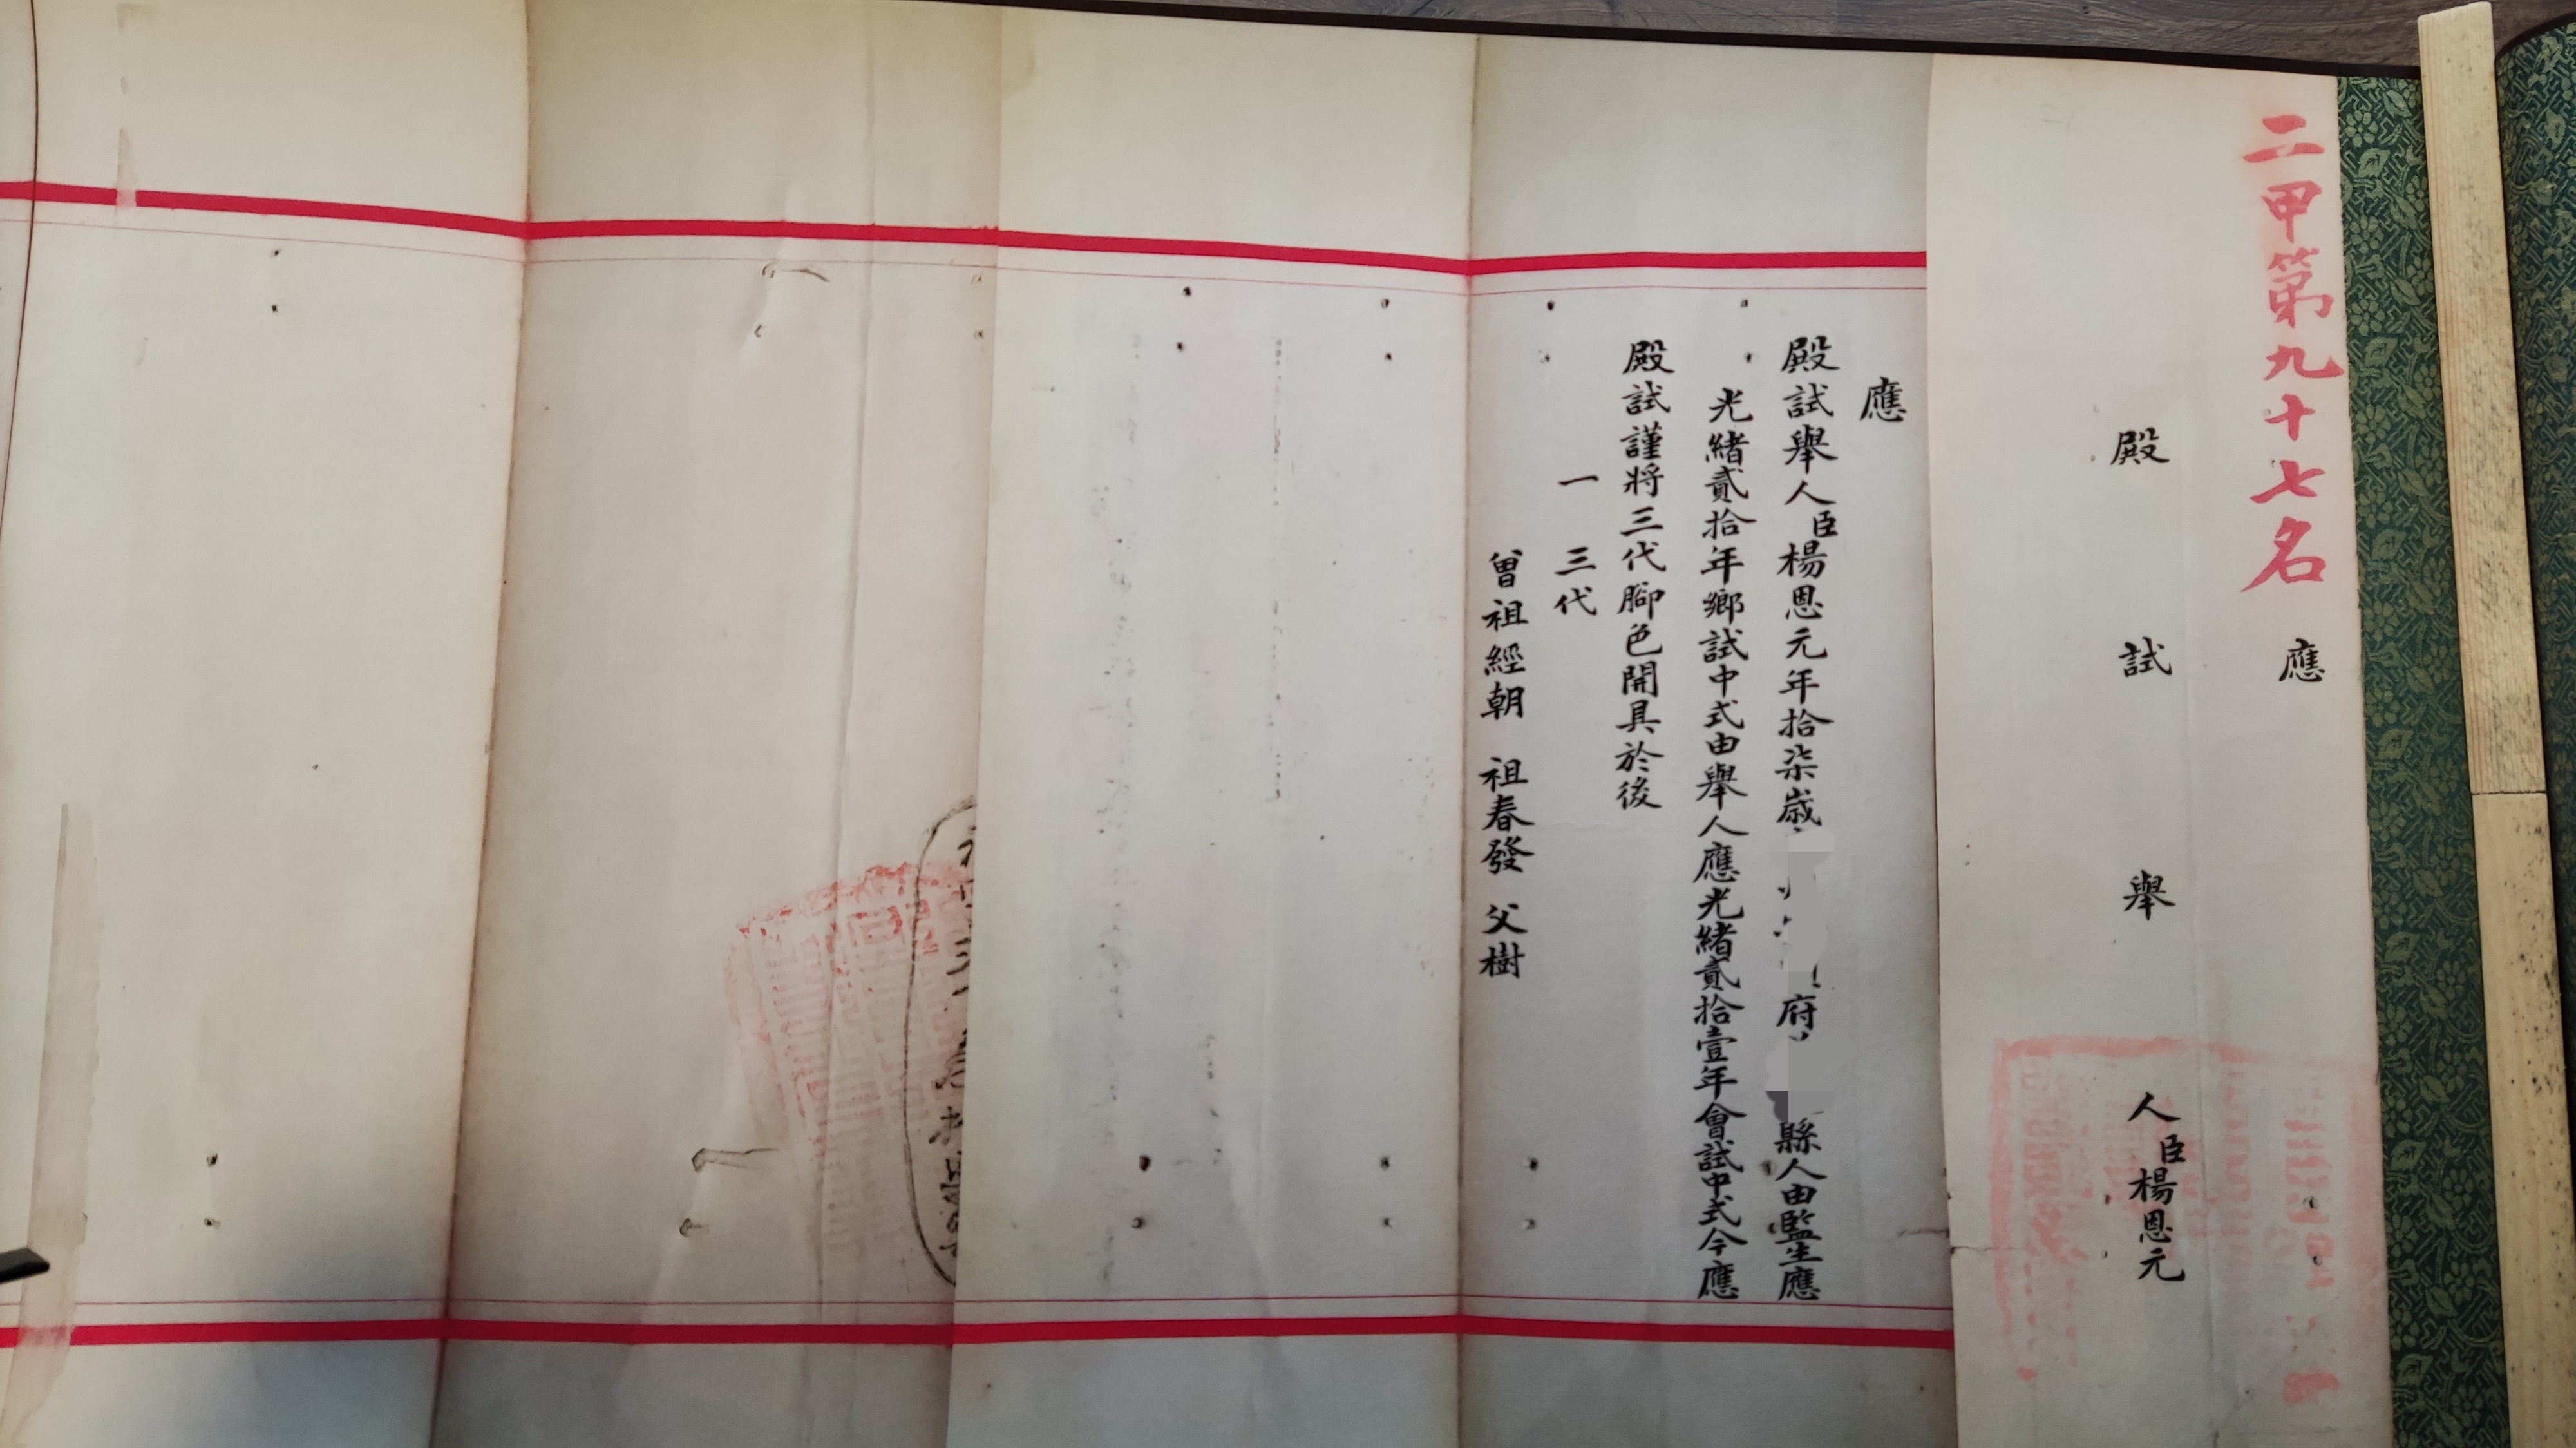 二甲第九十七名
應
殿試舉人臣楊恩元
應
殿試舉人臣楊恩元年拾柒歲 府 縣人由監生應
光緒貳拾年鄉試中式由舉人應光緒貳拾壹年會試中式今應
殿試謹將三代腳色開具於後
一 三代
曾祖經朝 祖春發 父樹